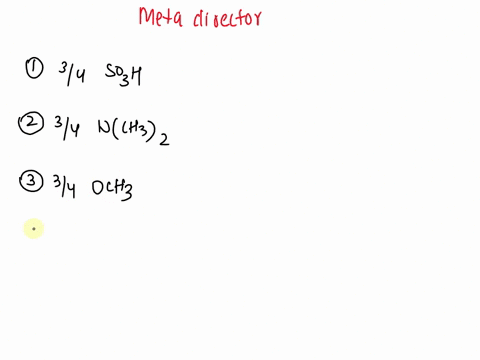 Meta director
① 3/4 SO3H
② 3/4 N(CH3)2
③ 3/4 OCH3